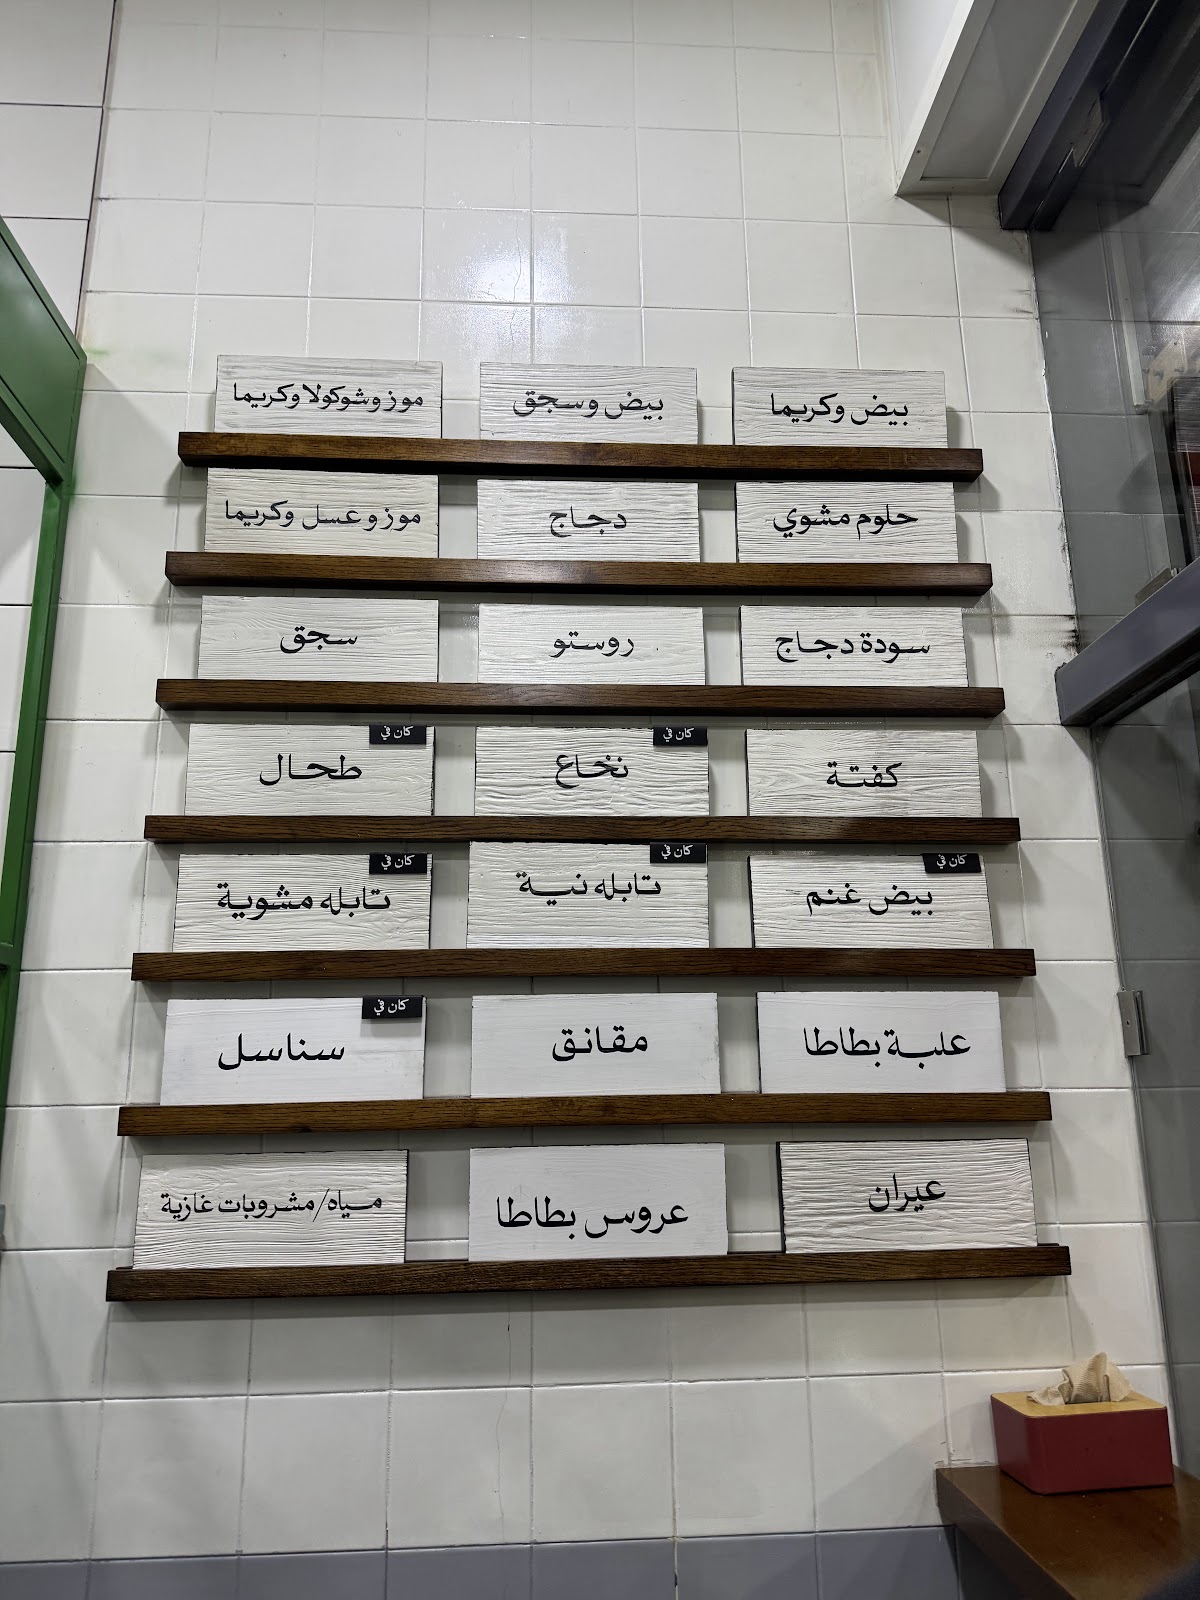 بيض وكريما
بيض وسجق
موز وشوكولا وكريما
حلوم مشوي
دجاج
موز و عسل وكريما
سودة دجاج
روستو
سجق
كفتة
كان في
نخاع
كان في
طحال
كان في
بيض غنم
كان في
تابله نية
كان في
تابله مشوية
علبة بطاطا
مقانق
كان في
سناسل
عيران
عروس بطاطا
مياه/مشروبات غازية